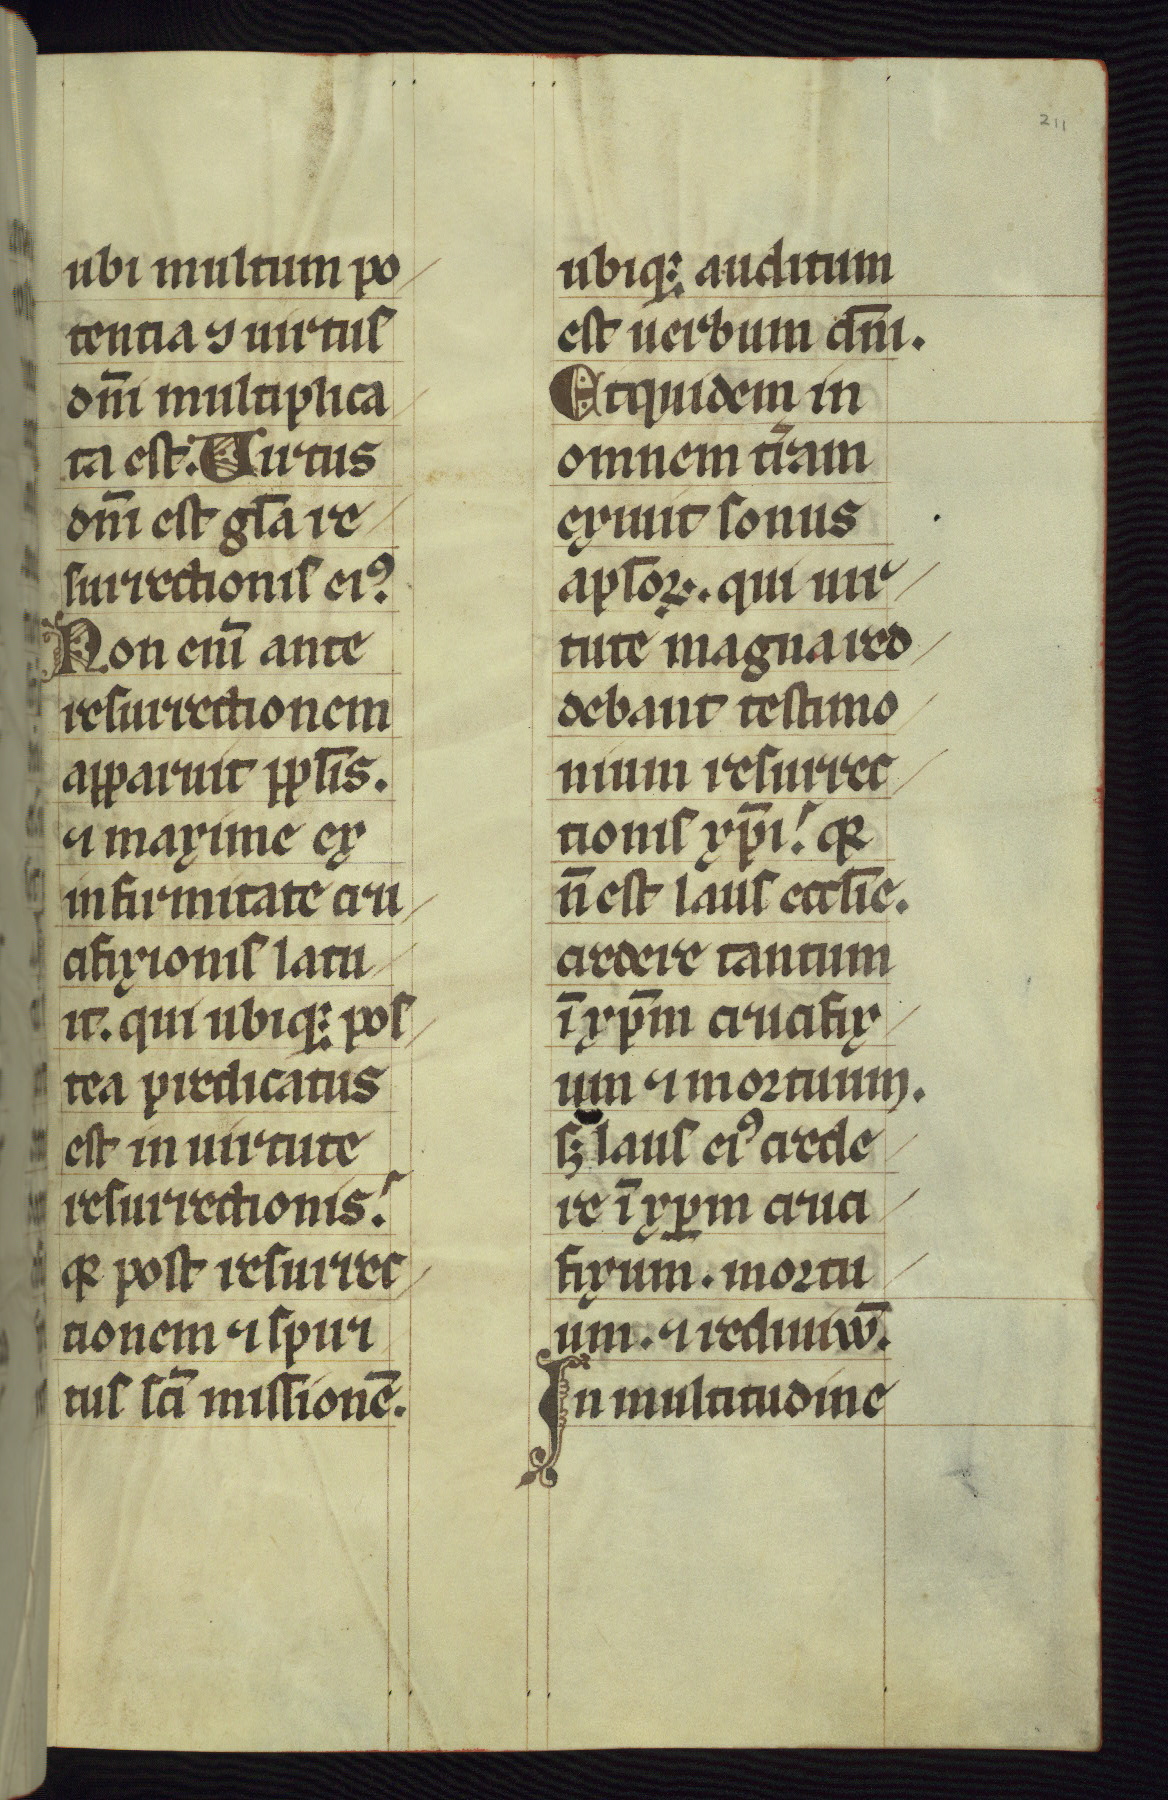 211
ubi multum po
tentia ⁊ uirtus
dñi multiplica
ta est. Uirtus
dñi est gła re
surrectionis eiꝰ.
Non enī ante
resurrectionem
apparuit ppłis.
⁊ maxime ex
infirmitate cru
cifixionis latu
it. qui ubiqꝫ pos
tea predicatus
est in uirtute
resurrectionis.
qꝛ post resurrec
tionem ⁊ spiri
tus sc̄i missionē.
ubiqꝫ auditum
est uerbum dñi.
Et quidem in
omnem tr̄am
exiuit sonus
apłoꝝ. qui uir
tute magna red
debant testimo
nium resurrec
tionis xp̄i. qꝛ
n̄ est laus eccłie.
credere tantum
ī xp̄m crucifix
um ⁊ mortuum.
sꝫ laus eiꝰ crede
re ī xp̄m cruci
fixum. mortu
um. ⁊ rediuiuū.
In multitudine